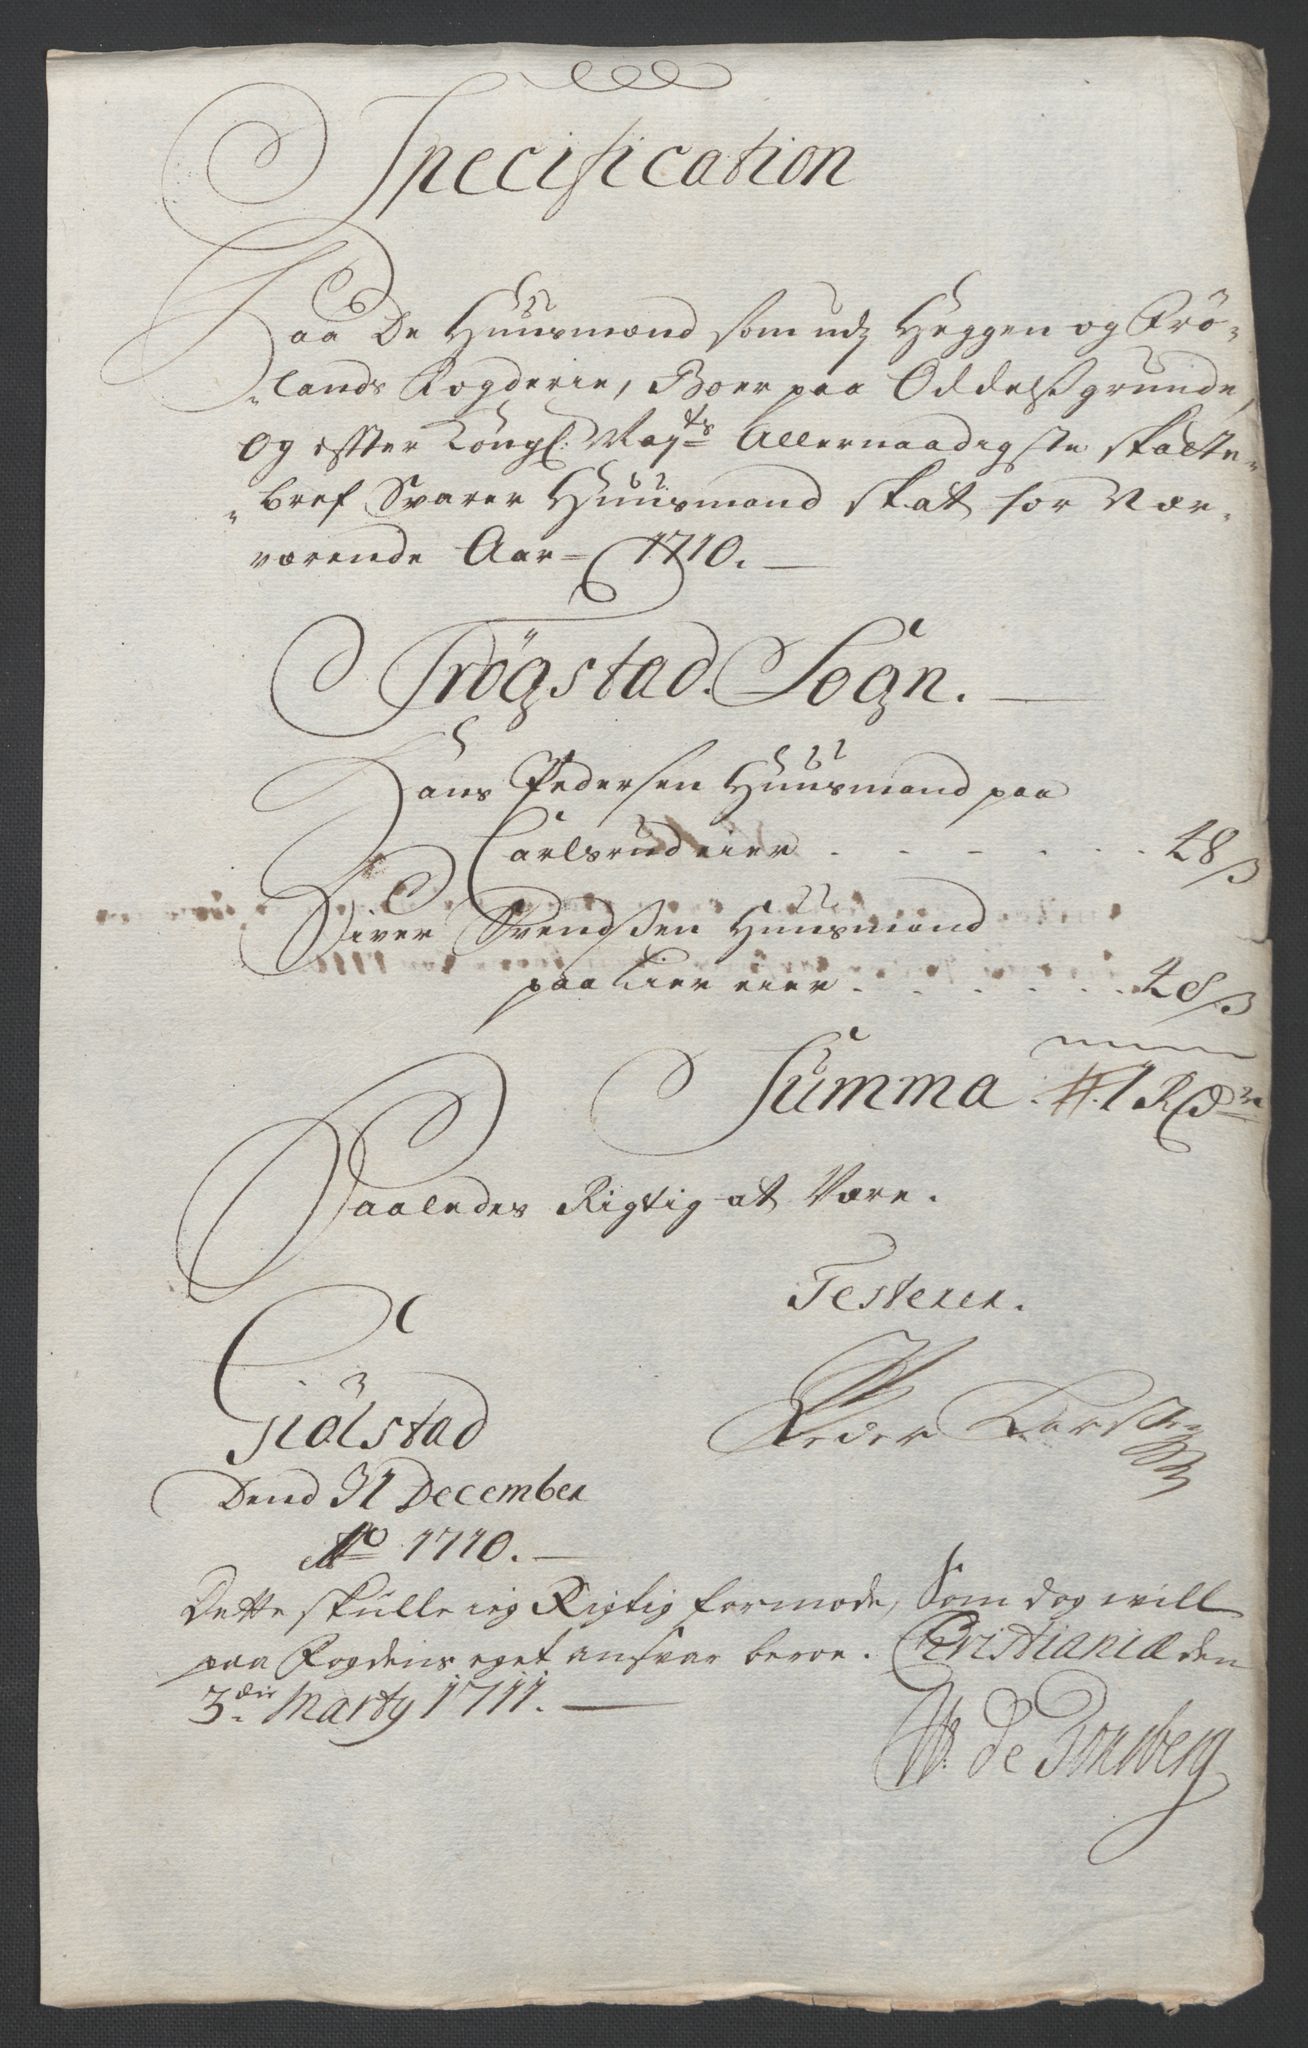 Specification
Paa De Huusmænd som udj Heggen og Frö-
lands Fogderie, Boer paa Oddelsgrunde,
Og effter Kongl: May:ts Allernaadigste skatte-
bref Svarer Huusmand skat for Nær-
værende Aar 1710.
Trögstad Sogn.
Hans Pedersen Huusmand paa
Carlsrud eier . . . . . . 48 β
Siver Svendsen Huusmand
paa Lier eier . . . . . . 48 β
Summa 1 Rdr
Saaledes Rigtig at Være.
Testerer.
Giölstad
Peder Karsten
Dend 31 December
Ao 1710.
Dette skulle ieg Rigtig formode, Som dog will
paa Fogdens eget ansvar beroe. Christiania den
3die Marty 1711.
W: de Tonsberg